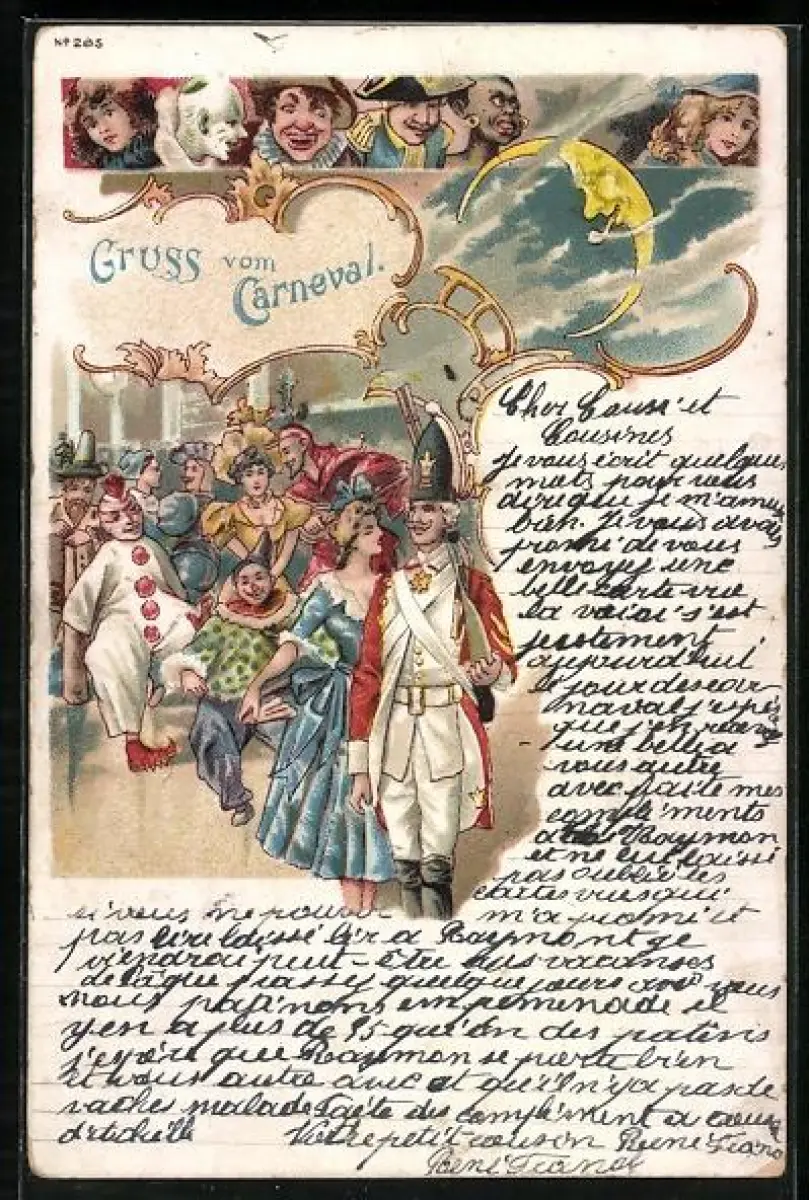 Nº 205
Gruss vom
Carneval.
Cher Cousi et
Cousines
je vous écrit quelques
mots pour vous
dire que je m'amuse
bien. Je vous avais
promi de vous
envoyy une
belle carte vue
la voici s'est
justement
aujourd'hui
le jour de car
naval j'espè
que j'en
une belle a
vous autre
avec faite mes
compléments
a Raymon
et ne lui laissé
pas oublié les
cartes vues qui
m'a promi et
si vous ne pouvez
pas lire laissé lir a Raymont je
viendrai peut-être aus vacanses
passy quelque jours avec vous
nous patinons em pemenade il
y en a plus de 95 qui on des patins
j'espére que Raymon se porte bien
et vous autre avec et qu'il n'ya pas de
vaches malade faite des complèment a
Votre petit cousin René
René